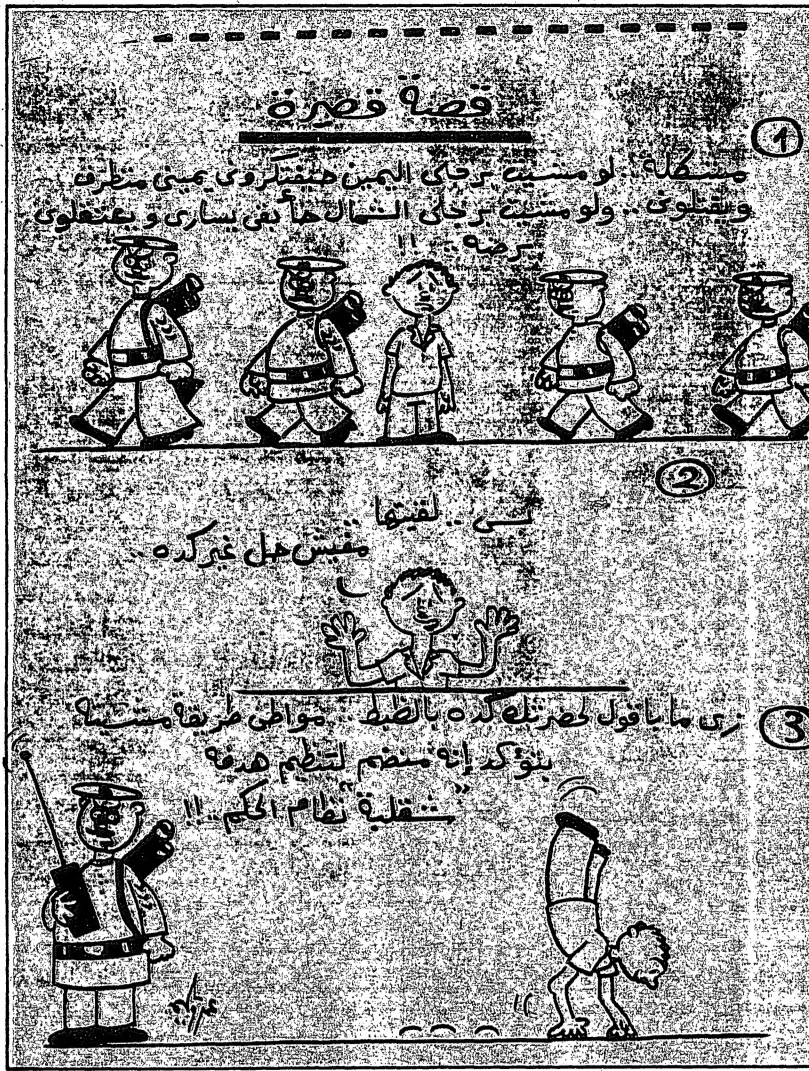 قصة قصيرة
1
مشكلة .. لو مشيت برجلى اليمين حيفتكرونى يمينى متطرف
ويقتلونى .. ولو مشيت برجلى الشمال حأبقى يسارى ويعتقلونى
برضه .. !!
2
بس .. لقيتها
مفيش حل غير كده ..
3
زى ما باقول لحضرتك كده بالظبط .. مواطن طريقة مشيته
بتؤكد إنه منضم لتنظيم هدفه
"شقلبة" نظام الحكم .. !!